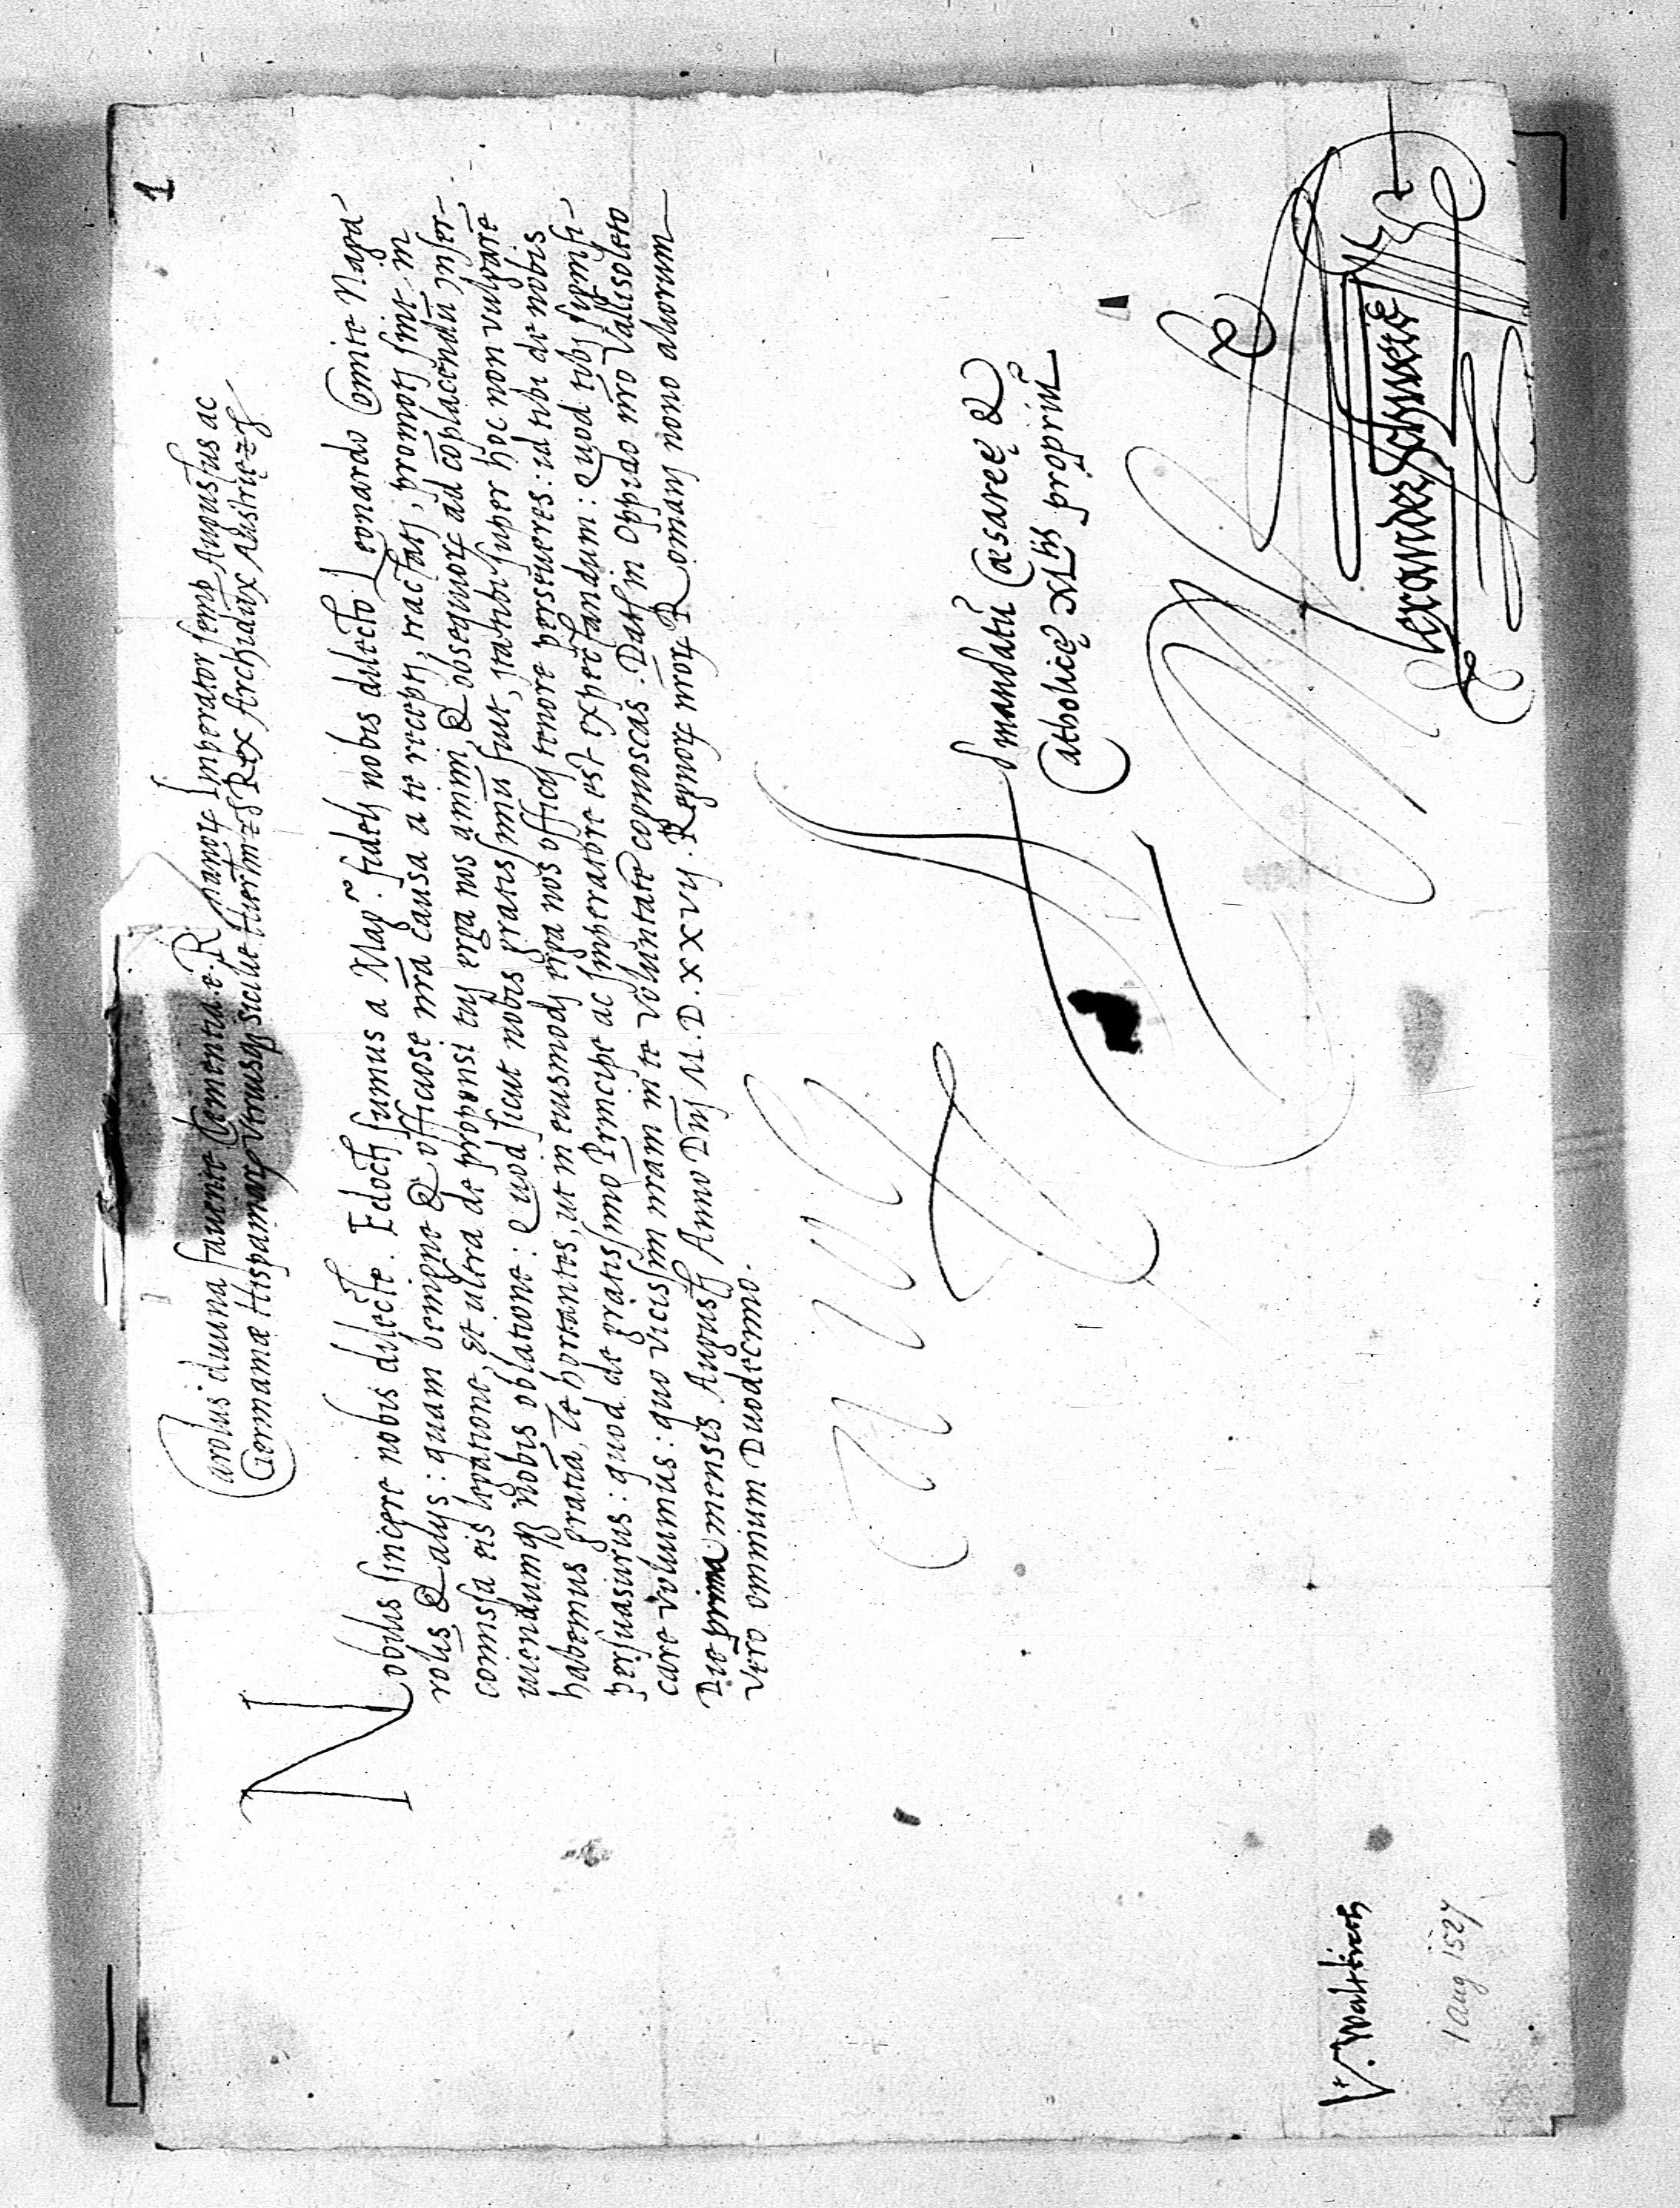 1
Carolus diuina fauente clementia .e. Romanorꝝ Imperator semp Augustus ac
Germaniæ Hispaniarꝝ Vtriusqꝫ Siciliæ Hierlm ꝛc̃ Rex Archidux Austrię ꝛc̃
Nobilis sincere nobis dilecte. Edocti sumus a Magco. fideli nobis dilecto Leonardo Comite Naga-
rolis & alijs: quam benigne & officiose nr̃a causa a te recepti, tractati, promoti sint in
comissa eis legatione, et ultra de propensi tuj erga nos animi & obsequiorꝝ ad cõplacendũ inser-
uiendumqꝫ nobis oblatione: Quod sicut nobis gratissimũ fuit, ita tibi super hoc non vulgarẽ
habemus gratiã, te hortantes, ut in eiusmodj erga nos officij tenore perseueres: id tibi de nobis
persuasurus: quod de gratissimo Principe ac Imperatore est expectandum: Quod tibj signifi-
care voluimus: quo vicissim nr̃am in te voluntatẽ cognoscas. Datũ in Oppido nr̃o Vallisoleto
Die prima mensis Augustj Anno Dñj M.D.XXVIJ. Regnorꝝ nr̃orꝝ Romanj nono aliorum
vero omnium Duodecimo.
Carolus
Ad mandatũ Cæsareę &
Catholicę Mtis propriũ
Alexander Schweis
Vt. Waltkirch
1 aug 1527